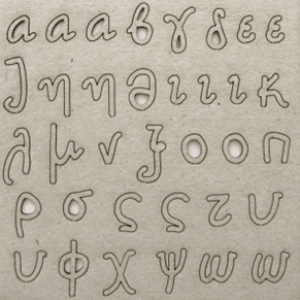 α α α β γ δ ε ε
ζ η η θ ι ι ι κ
λ μ ν ξ ο ο π
ρ σ ς ς τ υ
υ φ χ ψ ω ω